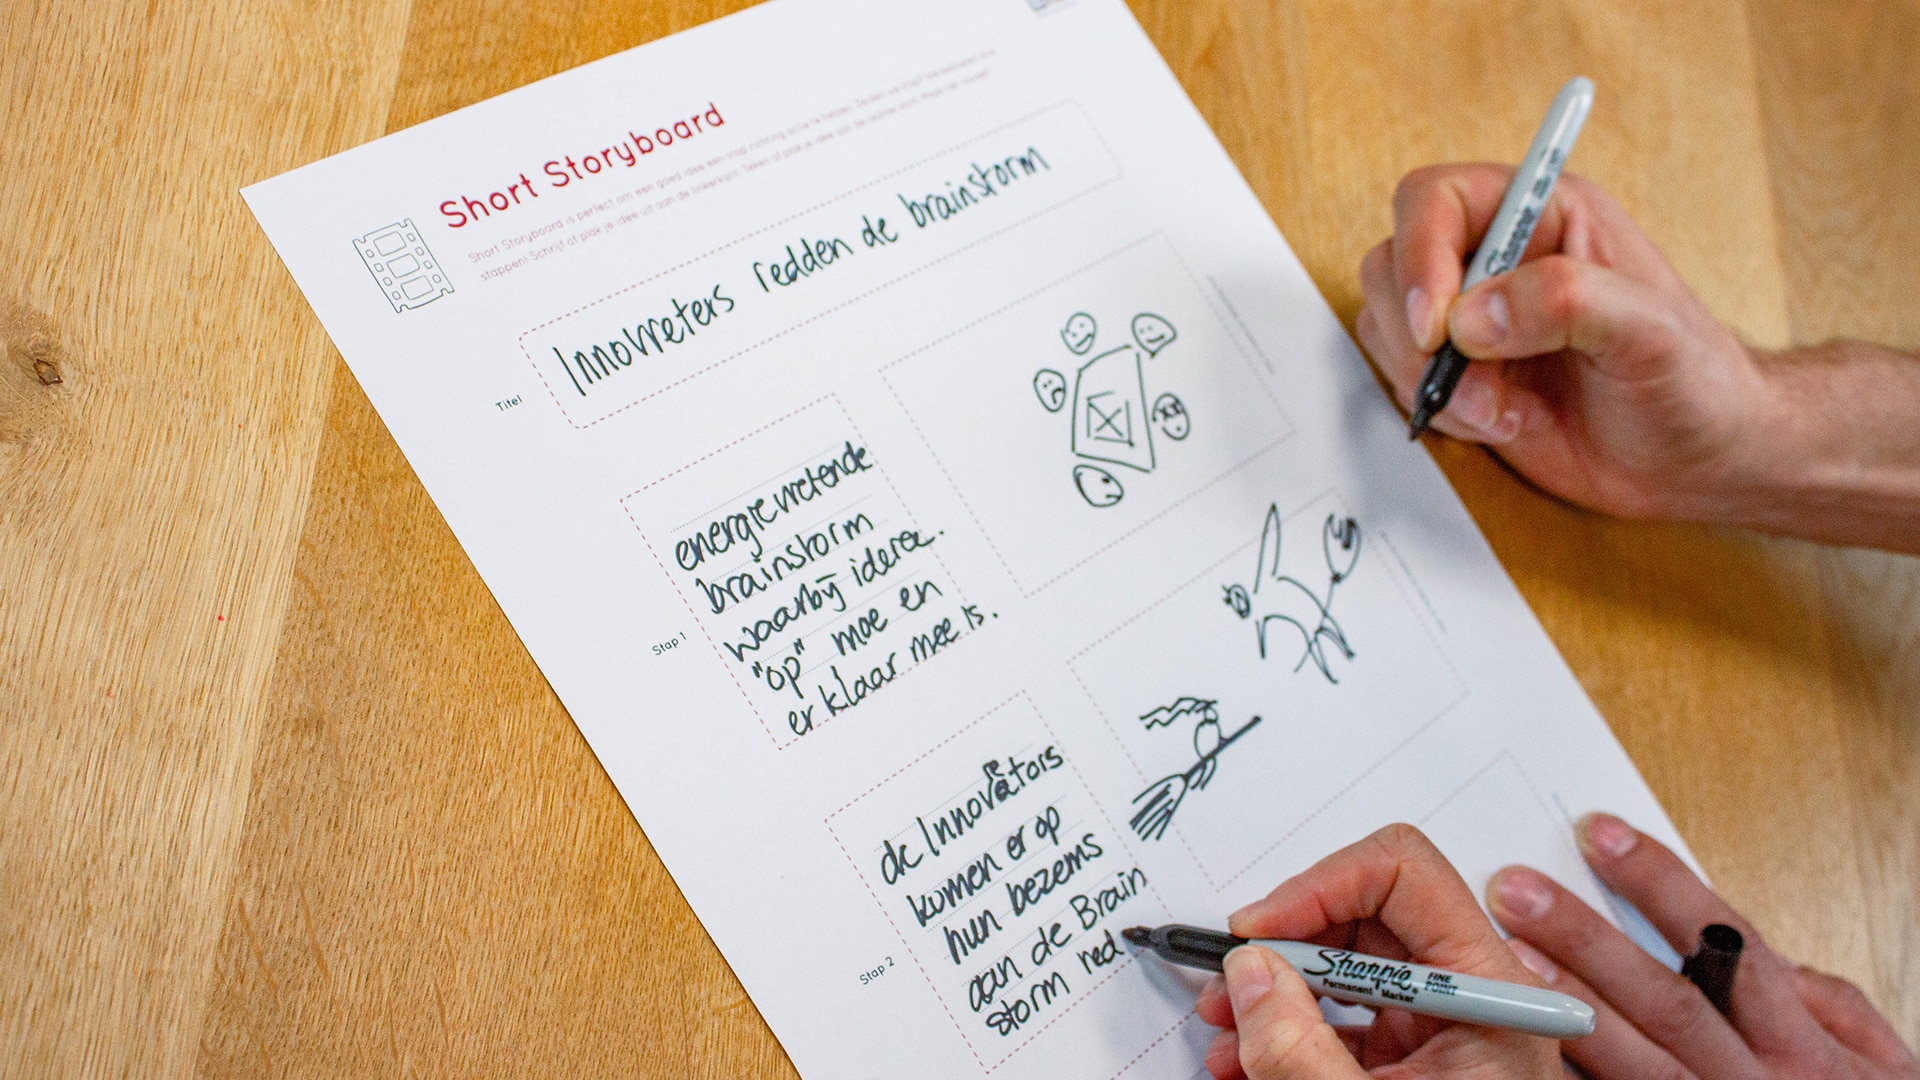 Short Storyboard
Short Storyboard is perfect om een goed idee een stap richting actie te helpen. Zetten we
stappen! Schrijf of plak je idee uit aan de linkerkant. Teken of plak je idee aan de rechterkant.
Titel
Innovreters redden de brainstorm
Stap 1
energievretende
brainstorm
waarbij iederee.
"op" moe en
er klaar mee is.
Stap 2
de Innovators
komen er op
hun bezems
aan de Brain
storm red
Sharpie
Sharpie. FINE POINT
Permanent Marker